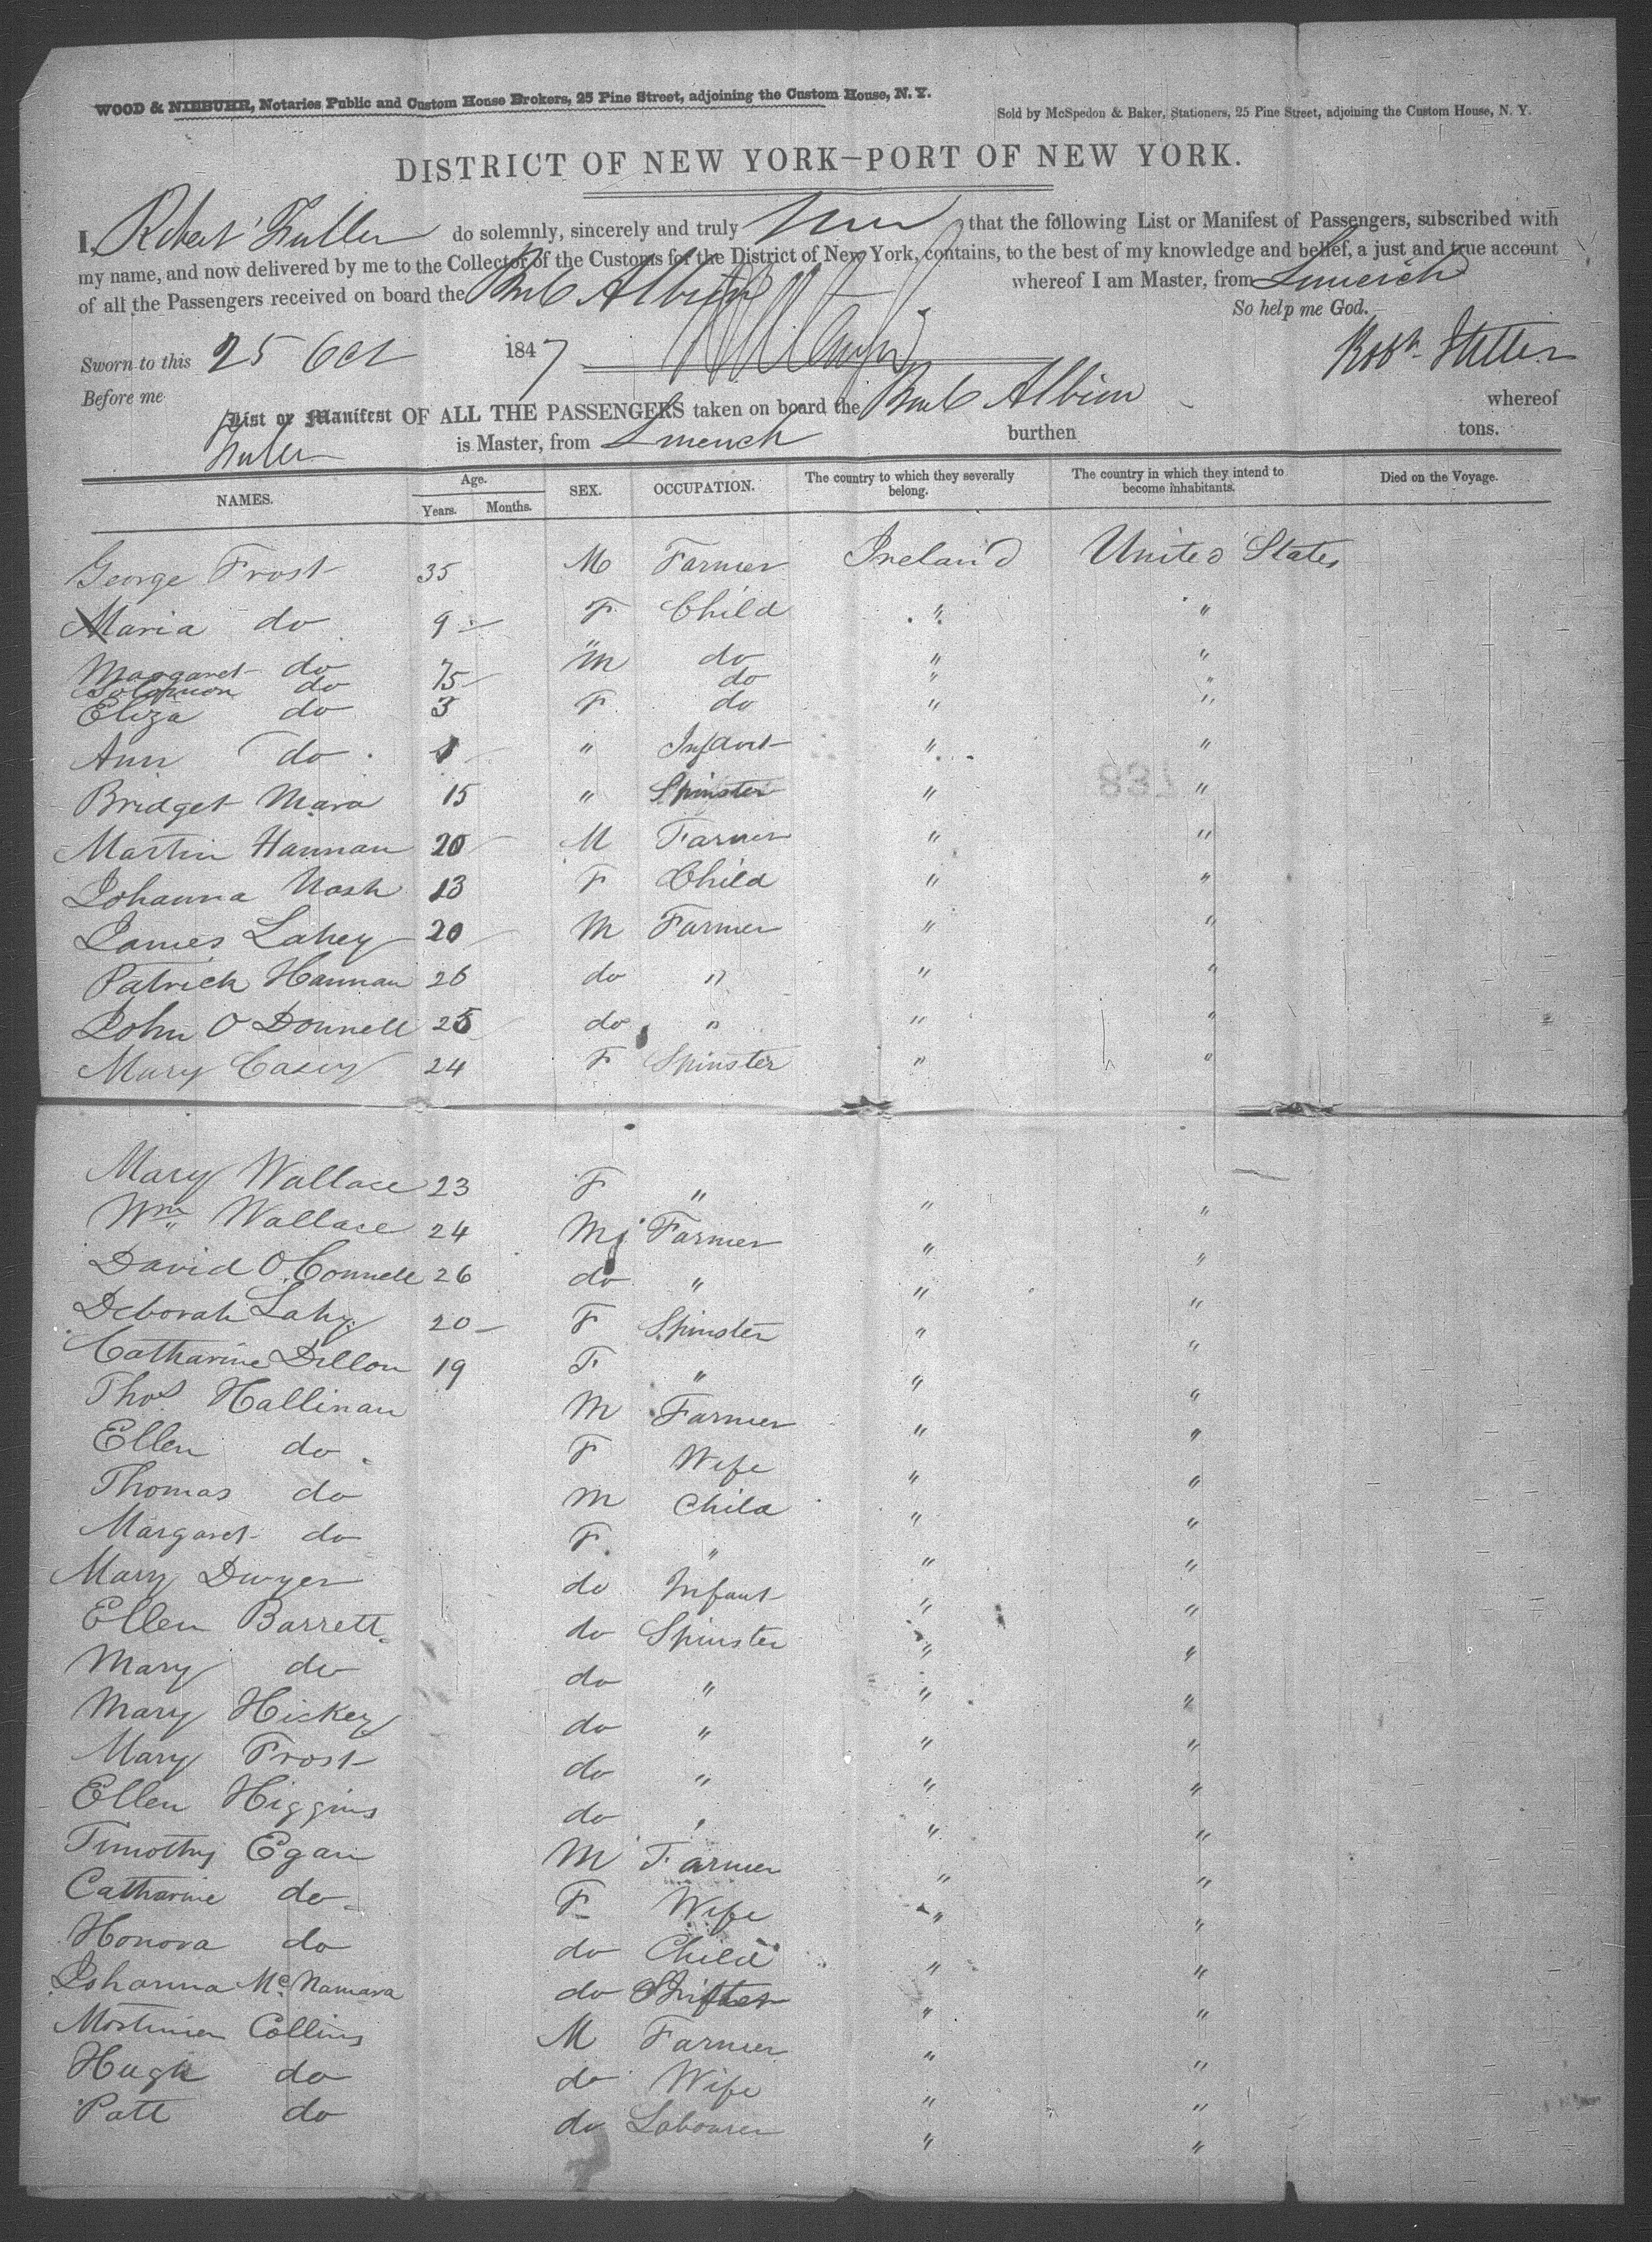 WOOD & NIEBUHR, Notaries Public and Custom House Brokers, 25 Pine Street, adjoining the Custom House, N. Y.
Sold by McSpedon & Baker, Stationers, 25 Pine Street, adjoining the Custom House, N. Y.
DISTRICT OF NEW YORK—PORT OF NEW YORK.
I, Robert do solemnly, sincerely and truly that the following List or Manifest of Passengers, subscribed with
my name, and now delivered by me to the Collector of the Customs for the District of New York, contains, to the best of my knowledge and belief, a just and true account
of all the Passengers received on board the Albion whereof I am Master, from Limerick
So help me God.
Sworn to this 25 Oct 1847
Robt
Before me
List or Manifest OF ALL THE PASSENGERS taken on board the Albion whereof
is Master, from Limerick burthen tons.
NAMES. Age. Years. Months. SEX. OCCUPATION. The country to which they severally belong. The country in which they intend to become inhabitants. Died on the Voyage.
George Frost 35 M Farmer Ireland United States
Maria do 9 F Child " "
Margaret do 7 M do " "
Solomon do 5 do " "
Eliza do 3 F do " "
Ann do 1 " Infant " "
Bridget Mara 15 " Spinster " "
Martin Hannan 20 M Farmer " "
Johanna Nash 13 F Child " "
James Lahey 20 M Farmer " "
Patrick Hannan 26 do " " "
John O Donnell 25 do " " "
Mary Casey 24 F Spinster " "
Mary Wallace 23 F " " "
Wm Wallace 24 M Farmer " "
David O Connell 26 do " " "
Deborah Lahy 20 F Spinster " "
Catharine Dillon 19 F " " "
Thos Hallinan M Farmer " "
Ellen do F Wife " "
Thomas do M Child " "
Margaret do F " " "
Mary Dwyer do Infant " "
Ellen Barrett do Spinster " "
Mary do do " " "
Mary Hickey do " " "
Mary Frost do " " "
Ellen Higgins do " " "
Timothy Egan M Farmer " "
Catharine do F Wife " "
Honora do do Child " "
Johanna McNamara do " "
Mortimer Collins M Farmer " "
Hugh do do Wife " "
Patt do do Labourer " "